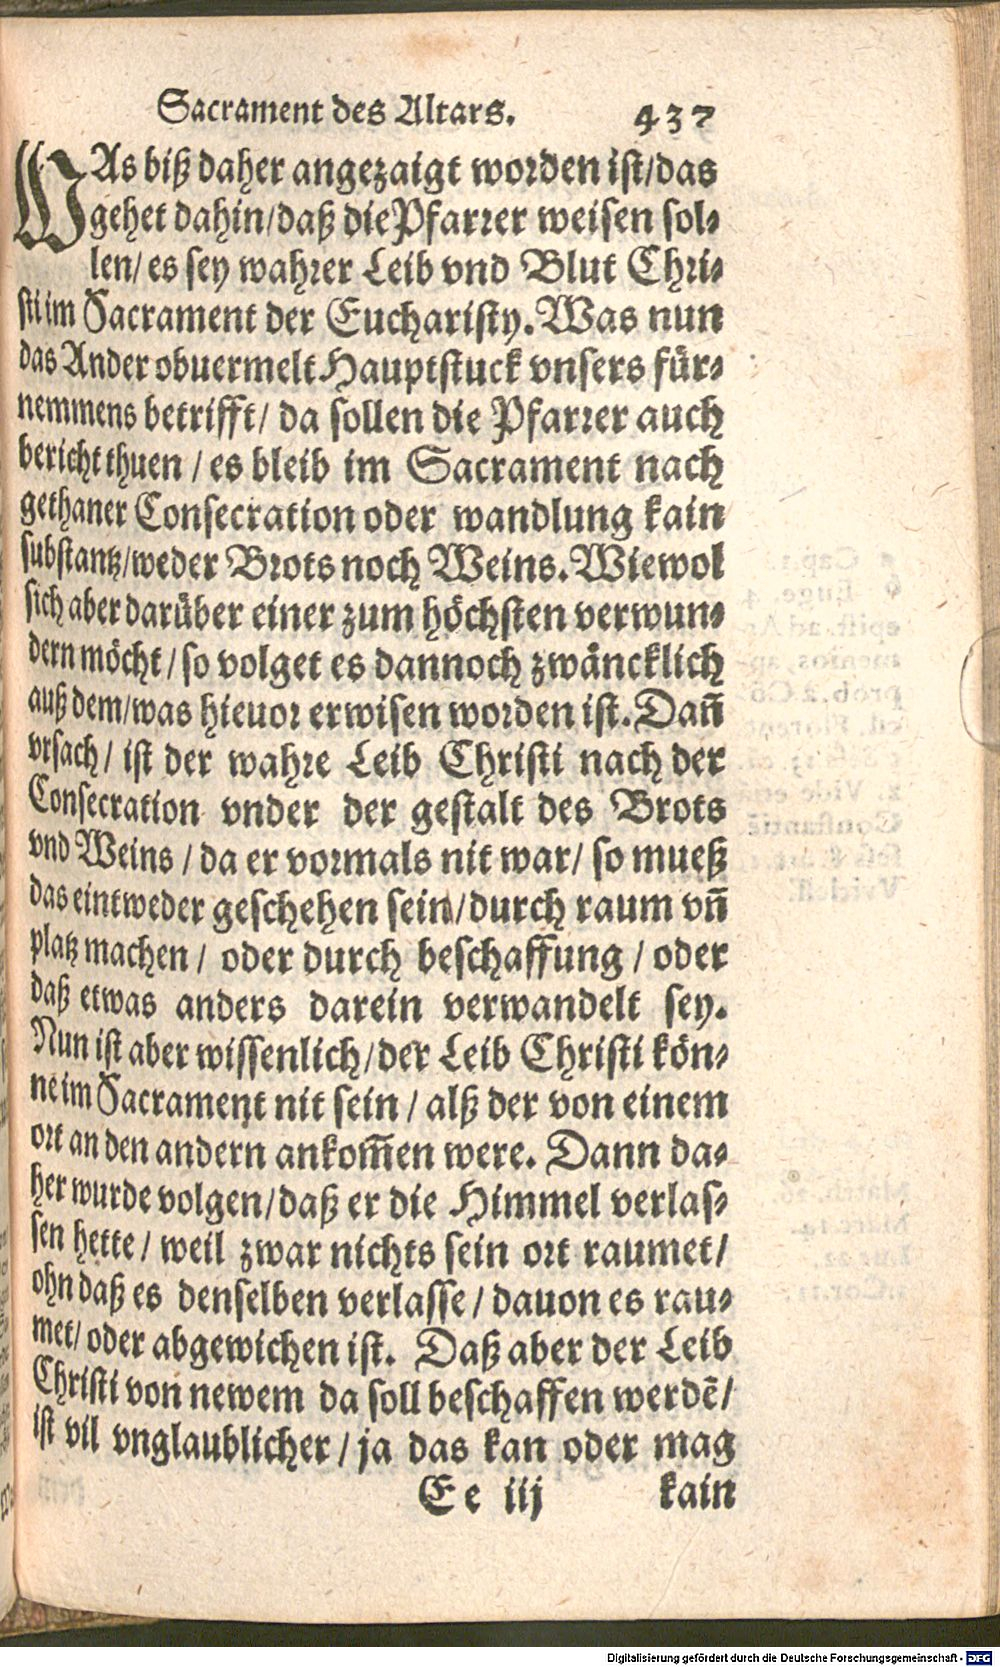 Sacrament des Altars. 437
WAs biß daher angezaigt worden ist/das
gehet dahin/daß die Pfarrer weisen sol-
len/ es sey wahrer Leib vnd Blut Chri-
sti im Sacrament der Eucharisty. Was nun
das Ander obuermelt Hauptstuck vnsers für-
nemmens betrifft/ da sollen die Pfarrer auch
bericht thuen / es bleib im Sacrament nach
gethaner Consecration oder wandlung kain
substantz/weder Brots noch Weins. Wiewol
sich aber darüber einer zum höchsten verwun-
dern möcht / so volget es dannoch zwäncklich
auß dem/was hieuor erwisen worden ist. Dañ
vrsach/ ist der wahre Leib Christi nach der
Consecration vnder der gestalt des Brots
vnd Weins / da er vormals nit war/ so mueß
das eintweder geschehen sein/durch raum vñ
platz machen / oder durch beschaffung / oder
daß etwas anders darein verwandelt sey.
Nun ist aber wissenlich/der Leib Christi kön-
ne im Sacrament nit sein / alß der von einem
ort an den andern ankom̃en were. Dann da-
her wurde volgen/daß er die Himmel verlas-
sen hette / weil zwar nichts sein ort raumet/
ohn daß es denselben verlasse / dauon es rau-
met/ oder abgewichen ist. Daß aber der Leib
Christi von newem da soll beschaffen werdẽ/
ist vil vnglaublicher / ja das kan oder mag
E e iij kain
Digitalisierung gefördert durch die Deutsche Forschungsgemeinschaft - DFG